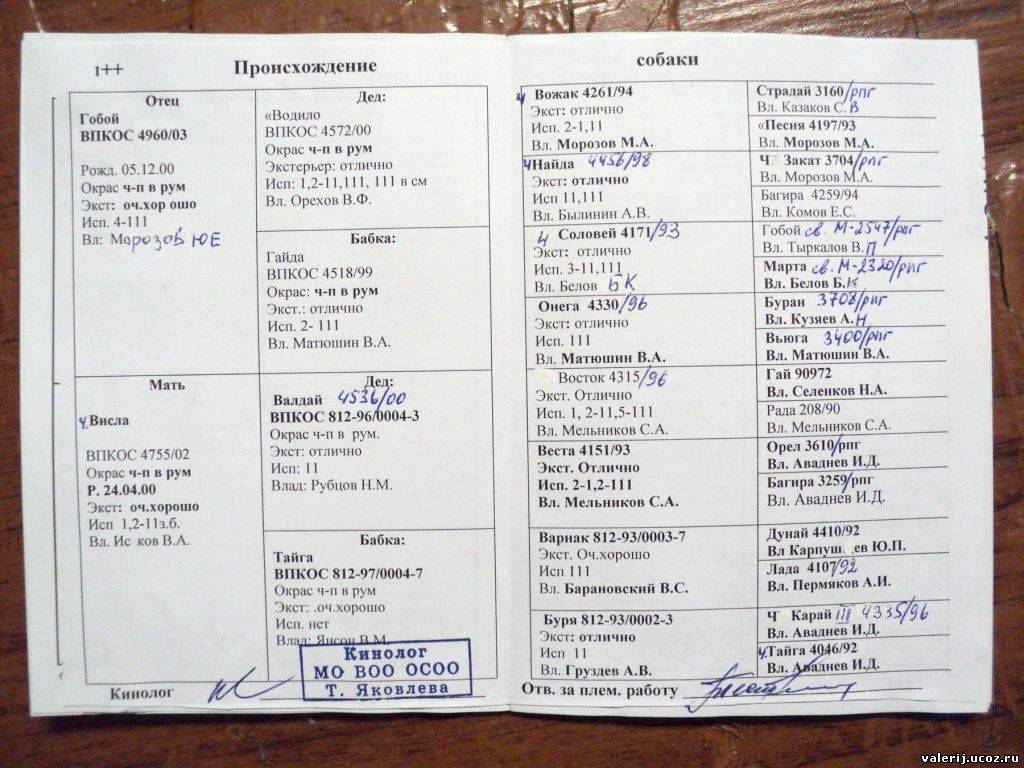 1++ Происхождение
собаки
Отец
Гобой
ВПКОС 4960/03
Рожд. 05.12.00
Окрас ч-п в рум
Экст: оч.хор ошо
Исп. 4-111
Вл: Морозов ЮЕ
Мать
ч.Висла
ВПКОС 4755/02
Окрас ч-п в рум
Р. 24.04.00
Экст: оч.хорошо
Исп 1,2-11з.б.
Вл. Ис ков В.А.
Дед:
«Водило
ВПКОС 4572/00
Окрас ч-п в рум
Экстерьер: отлично
Исп: 1,2-11,111, 111 в см
Вл. Орехов В.Ф.
Бабка:
Гайда
ВПКОС 4518/99
Окрас: ч-п в рум
Экст.: отлично
Исп. 2- 111
Вл. Матюшин В.А.
Дед:
Валдай 4536/00
ВПКОС 812-96/0004-3
Окрас ч-п в рум.
Экст: отлично
Исп: 11
Влад: Рубцов Н.М.
Бабка:
Тайга
ВПКОС 812-97/0004-7
Окрас ч-п в рум
Экст: .оч.хорошо
Исп. нет
Влад: Янсон В.М.
Кинолог
Кинолог
МО ВОО ОСОО
Т. Яковлева
ч Вожак 4261/94
Экст: отлично
Исп. 2-1,11
Вл. Морозов М.А.
ч Найда 4456/98
Экст: отлично
Исп 11,111
Вл. Былинин А.В.
ч Соловей 4171/93
Экст: отлично
Исп. 3-11,111
Вл. Белов БК
Онега 4330/96
Экст: отлично
Исп. 111
Вл. Матюшин В.А.
Восток 4315/96
Экст. Отлично
Исп. 1, 2-11,5-111
Вл. Мельников С.А.
Веста 4151/93
Экст. Отлично
Исп. 2-1,2-111
Вл. Мельников С.А.
Варнак 812-93/0003-7
Экст. Оч.хорошо
Исп 111
Вл. Барановский В.С.
Буря 812-93/0002-3
Экст: отлично
Исп 11
Вл. Груздев А.В.
Страдай 3160/рпг
Вл. Казаков С.В
«Песня 4197/93
Вл. Морозов М.А.
Ч Закат 3704/рпг
Вл. Морозов М.А.
Багира 4259/94
Вл. Комов Е.С.
Гобой св. М-2547/рпг
Вл. Тыркалов В.П
Марта св. М-2320/рпг
Вл. Белов Б.К
Буран 3708/рпг
Вл. Кузяев А.Н
Вьюга 3400/рпг
Вл. Матюшин В.А.
Гай 90972
Вл. Селенков Н.А.
Рада 208/90
Вл. Мельников С.А.
Орел 3610/рпг
Вл. Аваднев И.Д.
Багира 3259/рпг
Вл. Аваднев И.Д.
Дунай 4410/92
Вл Карпуш ев Ю.П.
Лада 4107/92
Вл. Пермяков А.И.
Ч Карай III 4335/96
Вл. Аваднев И.Д.
ч.Тайга 4046/92
Вл. Аваднев И.Д.
Отв. за плем. работу
valerij.ucoz.ru